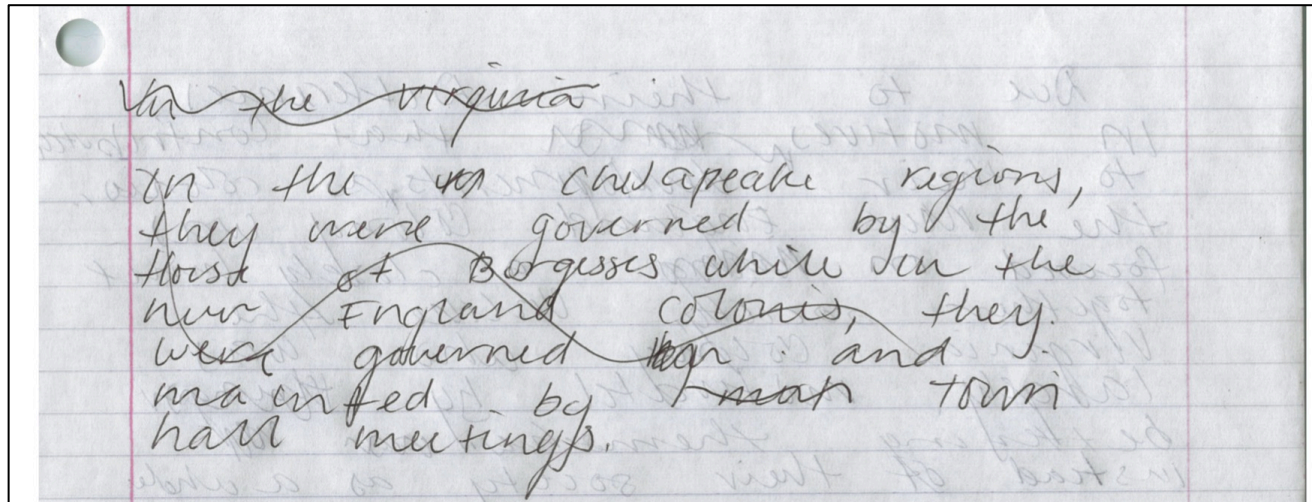 In the virginia
In the chesapeake regions,
they were governed by the
House of Burgesses while in the
new England colonis, they
were governed and
mainted by town
hall meetings.